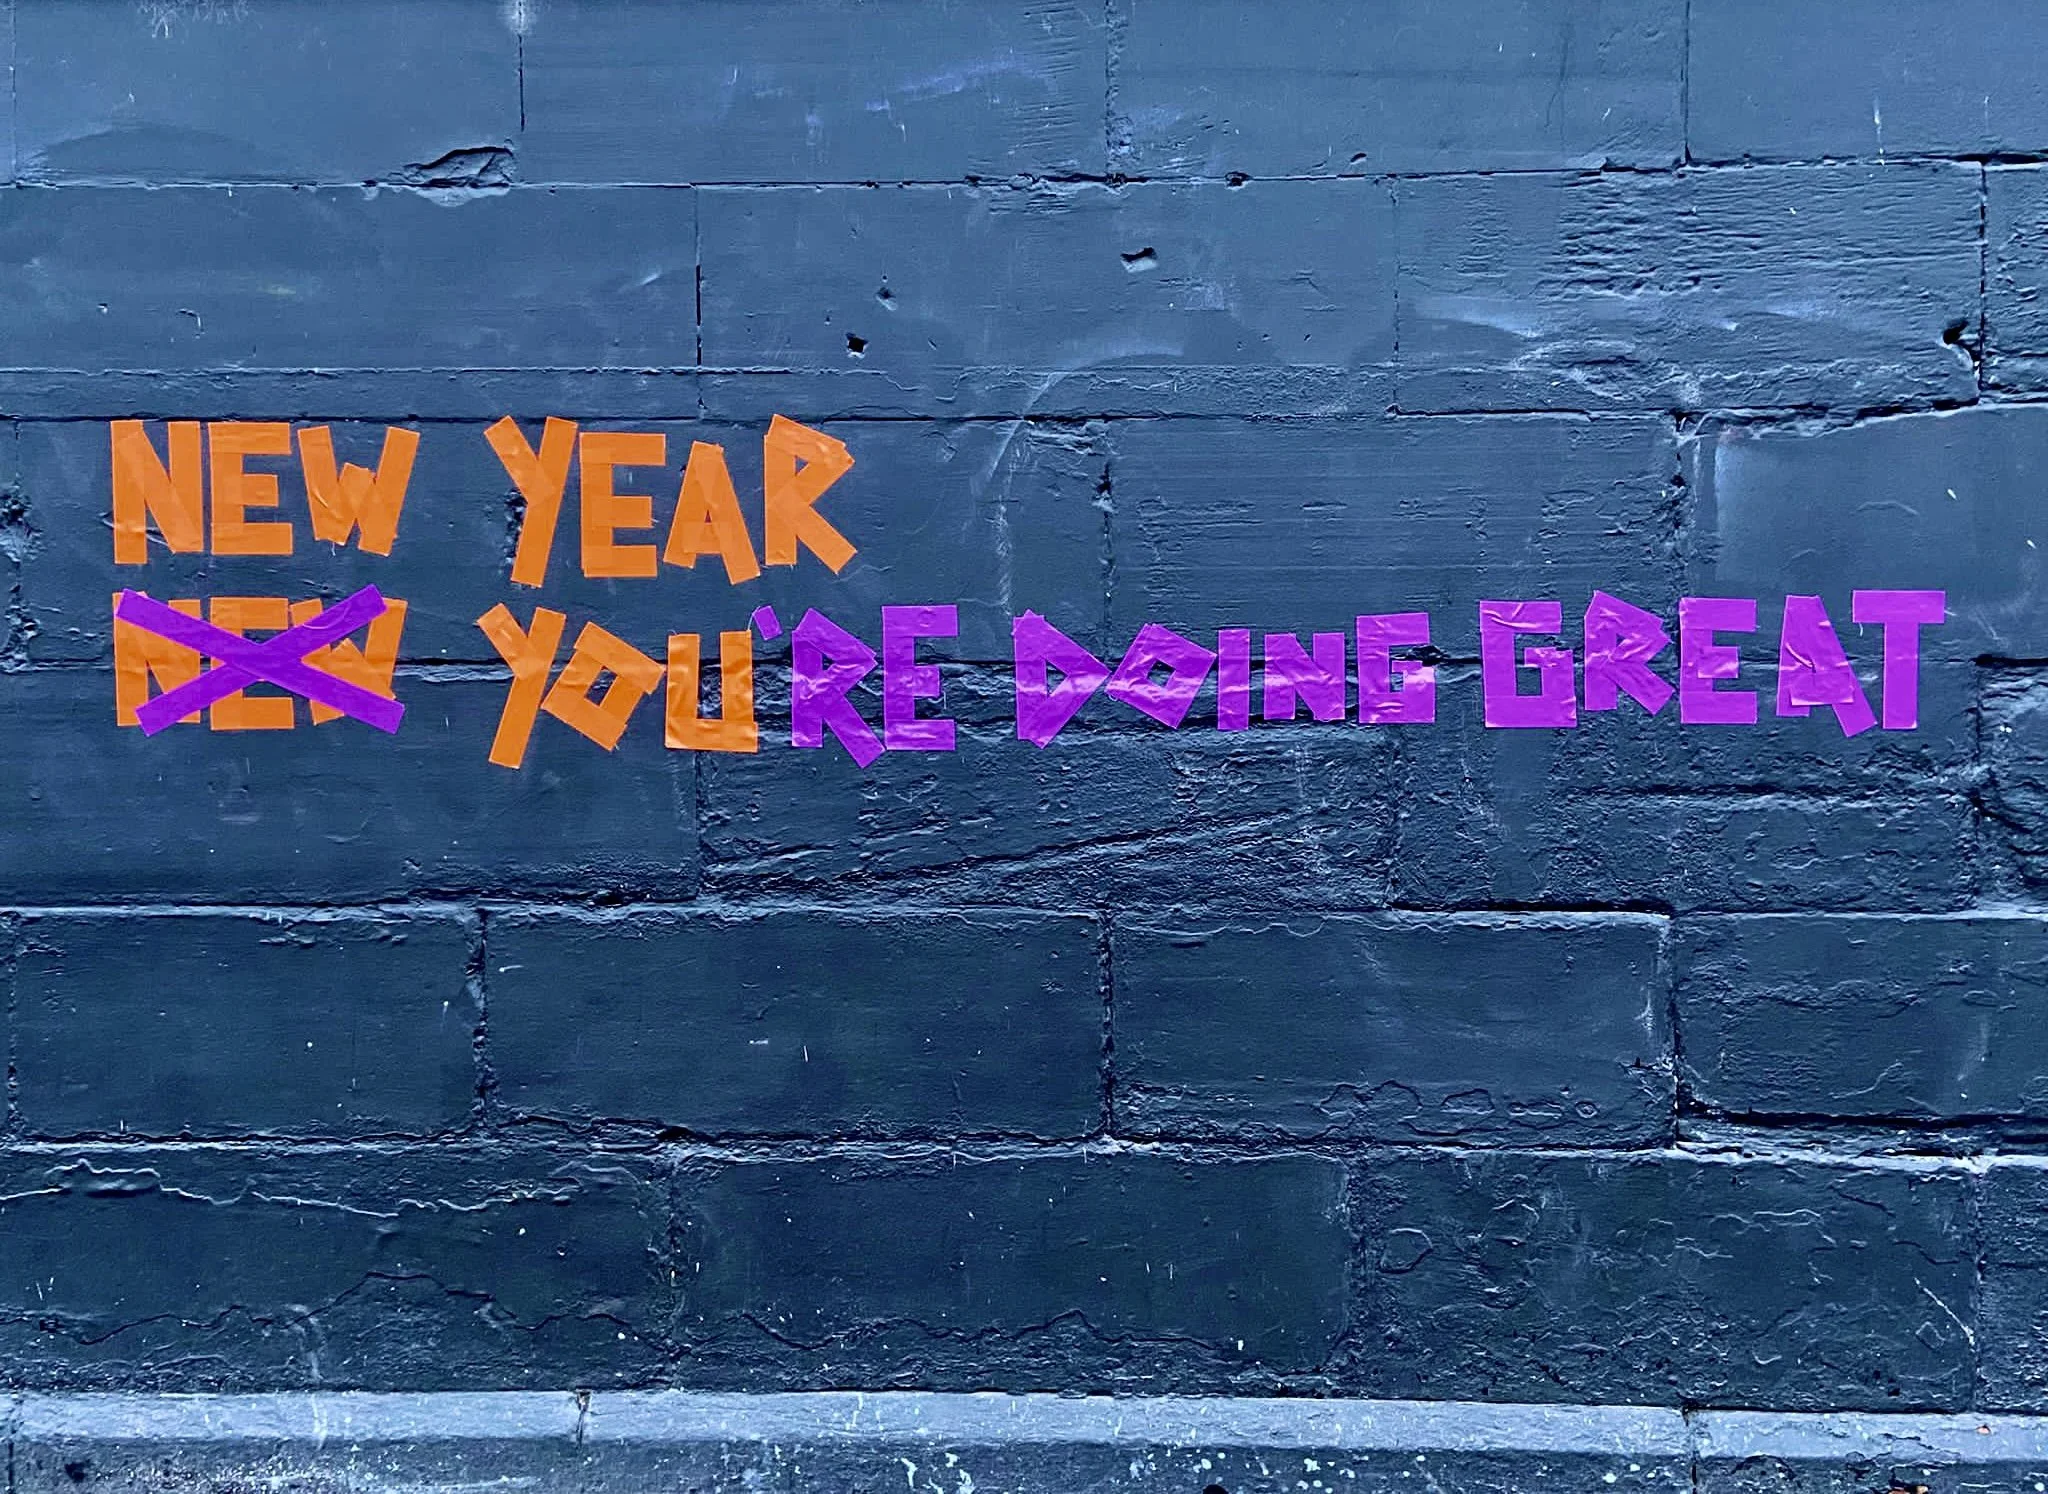 NEW YEAR
NEW YOU'RE DOING GREAT